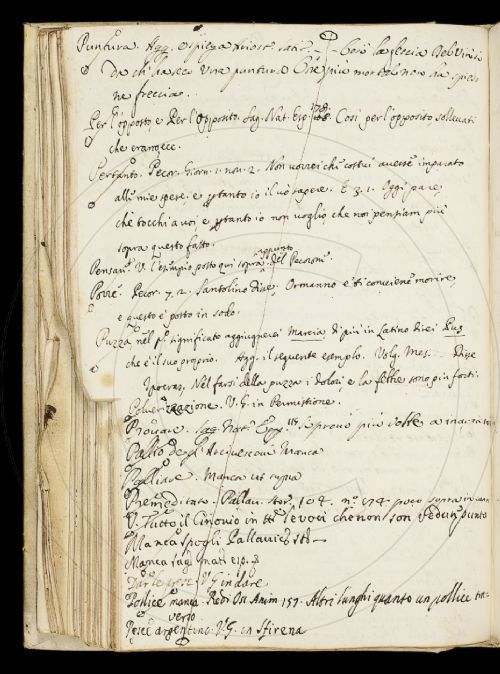 Puntura. Agg. e spiega Ariost. sat.
Da chi ha seco una puntura che più mortal non ha
ne freccia.
Per l'opposto, e Per l'Opposito. Sag. Nat. Esp. 178. Così per l'opposito sollevati
che erano ecc.
Pertanto. Pecor. Giorn. 1. nov. 2. Non vorrei che costui avesse imparato
alle mie spese, e pertanto io il vo' sapere. E 3. 1. Oggi pare,
che tocchi a voi, e pertanto io non voglio che noi pensiam più
sopra questo fatto.
Pensau. V. l'esempio posto qui sopra appunto del Pecorone.
Porre. Pecor. 7. 2. Santolino disse, Ormanno e' ti conviene morire,
e questo è posto in sodo.
Puzza nel p.º significato aggiugnerei Marcia, di più in Latino direi Pus
che è il suo proprio. Agg. il seguente esemplo. Volg. Mes. Disse
Ipocras. Nel farsi della puzza i dolori e la febbre sono più forti.
Polverizzazione. V. G. in Permistione.
Provare. Sag. Nat. Esp. 115 si provò più volte a
Pallio degl' Arcivescovi Manca
Palliare. Manca ut supra
Premeditato. Pallav. Stor. 104. n.º 174 poco sopra in
V. Tutto il
Manca spogli Pallavic.
Manca sag. nat. esp. 3
V. G. in dare
Pollice manca. Redi Oss. Anim 157. Altri lunghi quanto un pollice
verso
Pesce argentino. V. G. in Sfirena